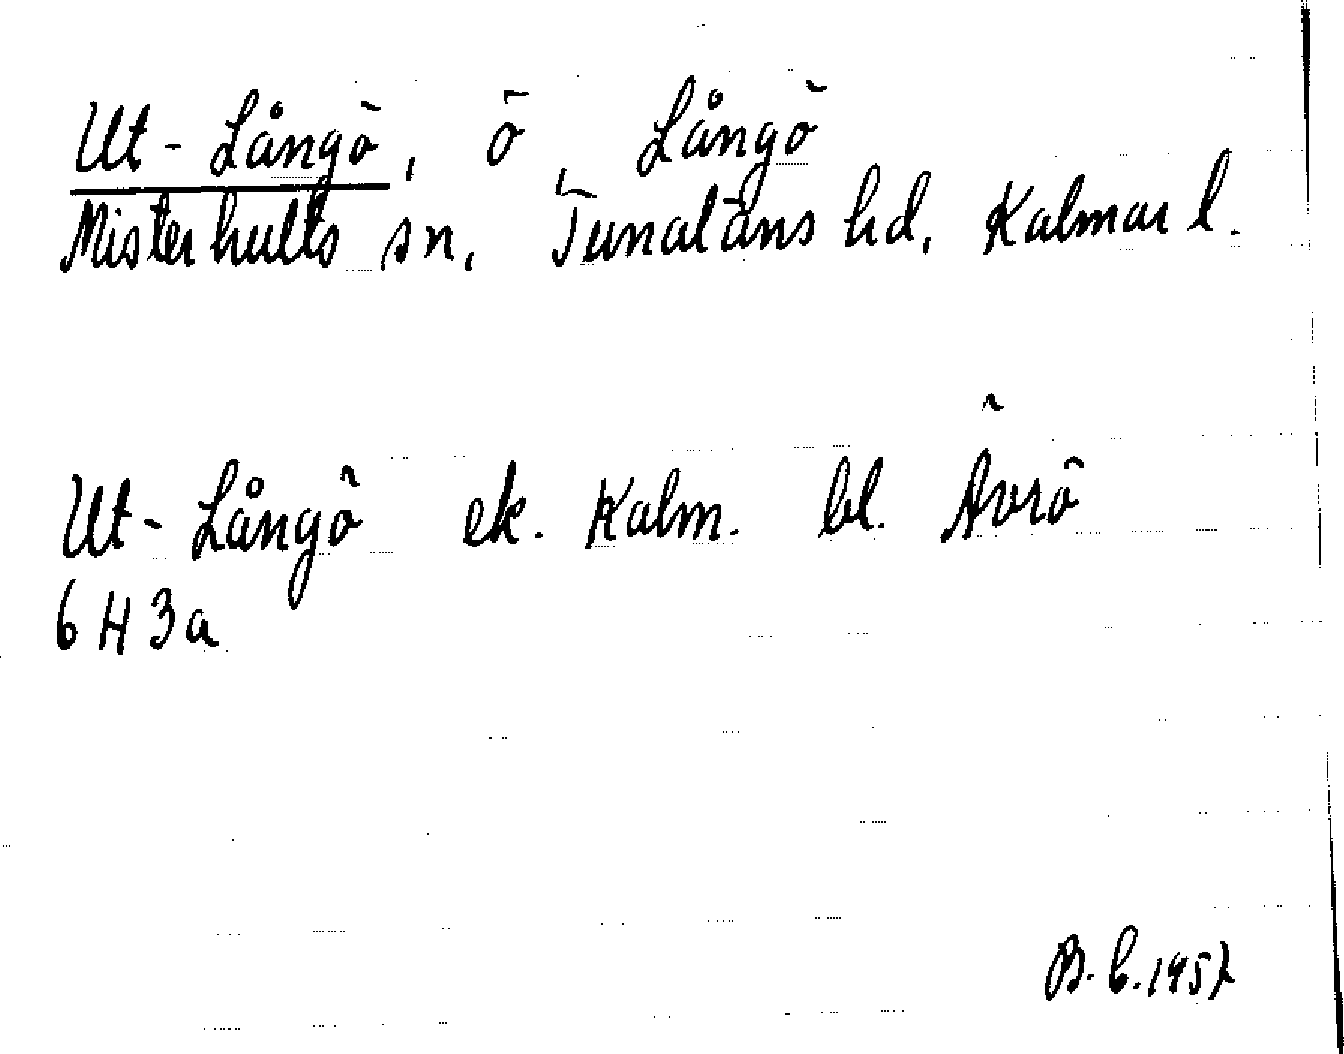 Ut-Långö, ö, Långö
Misterhults sn, Tunaläns hd, Kalmar l.
Ut-Långö ek. Kalm. bl. Ävrö
6H3a
B.C. 1957